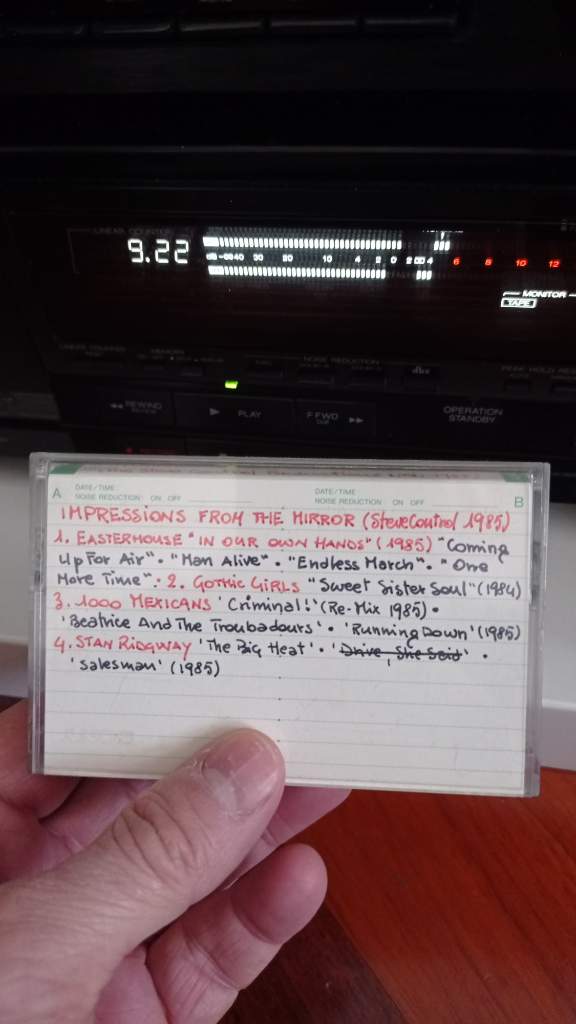 LINEAR COUNTER
9.22
dB -∞ 40 30 20 10 4 2 0 2 4 6 8 10 12
MONITOR
TAPE
NOISE REDUCTION
dbx
PEAK HOLD
◀◀ REWIND
▶ PLAY
F FWD ▶▶
OPERATION
STANDBY
A DATE/TIME DATE/TIME B
NOISE REDUCTION: ON OFF NOISE REDUCTION: ON OFF
IMPRESSIONS FROM THE MIRROR (Steve Control 1985)
1. EASTERHOUSE "IN OUR OWN HANDS" (1985) "Coming
Up For Air" • "Man Alive" • "Endless March" • "One
More Time" • 2. GOTHIC GIRLS "Sweet Sister Soul" (1984)
3. 1000 MEXICANS 'Criminal!' (Re-Mix 1985) •
'Beatrice And The Troubadours' • 'Running Down' (1985)
4. STAN RIDGWAY 'The Big Heat' • 'Drive, She Said' •
'Salesman' (1985)